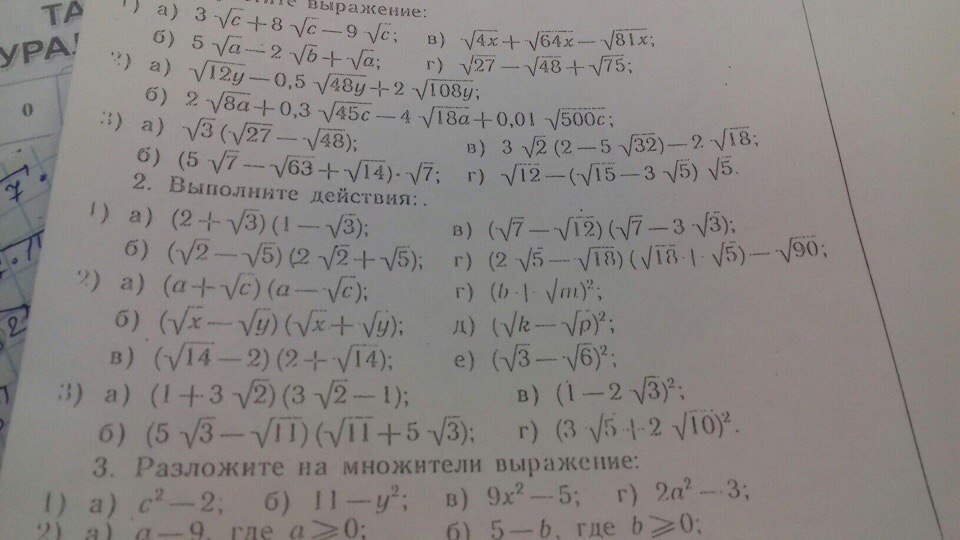 ТА
УРА
0
выражение:
1) а) 3 √c + 8 √c − 9 √c; в) √4x + √64x − √81x;
б) 5 √a − 2 √b + √a; г) √27 − √48 + √75;
2) а) √12y − 0,5 √48y + 2 √108y;
б) 2 √8a + 0,3 √45c − 4 √18a + 0,01 √500c;
3) а) √3 (√27 − √48); в) 3 √2 (2 − 5 √32) − 2 √18;
б) (5 √7 − √63 + √14)·√7; г) √12 − (√15 − 3 √5) √5.
2. Выполните действия:
1) а) (2 + √3) (1 − √3); в) (√7 − √12) (√7 − 3 √3);
б) (√2 − √5) (2 √2 + √5); г) (2 √5 − √18) (√18 + √5) − √90;
2) а) (a + √c) (a − √c); г) (b + √m)²;
б) (√x − √y) (√x + √y); д) (√k − √p)²;
в) (√14 − 2) (2 + √14); е) (√3 − √6)²;
3) а) (1 + 3 √2) (3 √2 − 1); в) (1 − 2 √3)²;
б) (5 √3 − √11) (√11 + 5 √3); г) (3 √5 + 2 √10)².
3. Разложите на множители выражение:
1) а) c² − 2; б) 11 − y²; в) 9x² − 5; г) 2a² − 3;
2) а) a − 9, где a ⩾ 0; б) 5 − b, где b ⩾ 0;